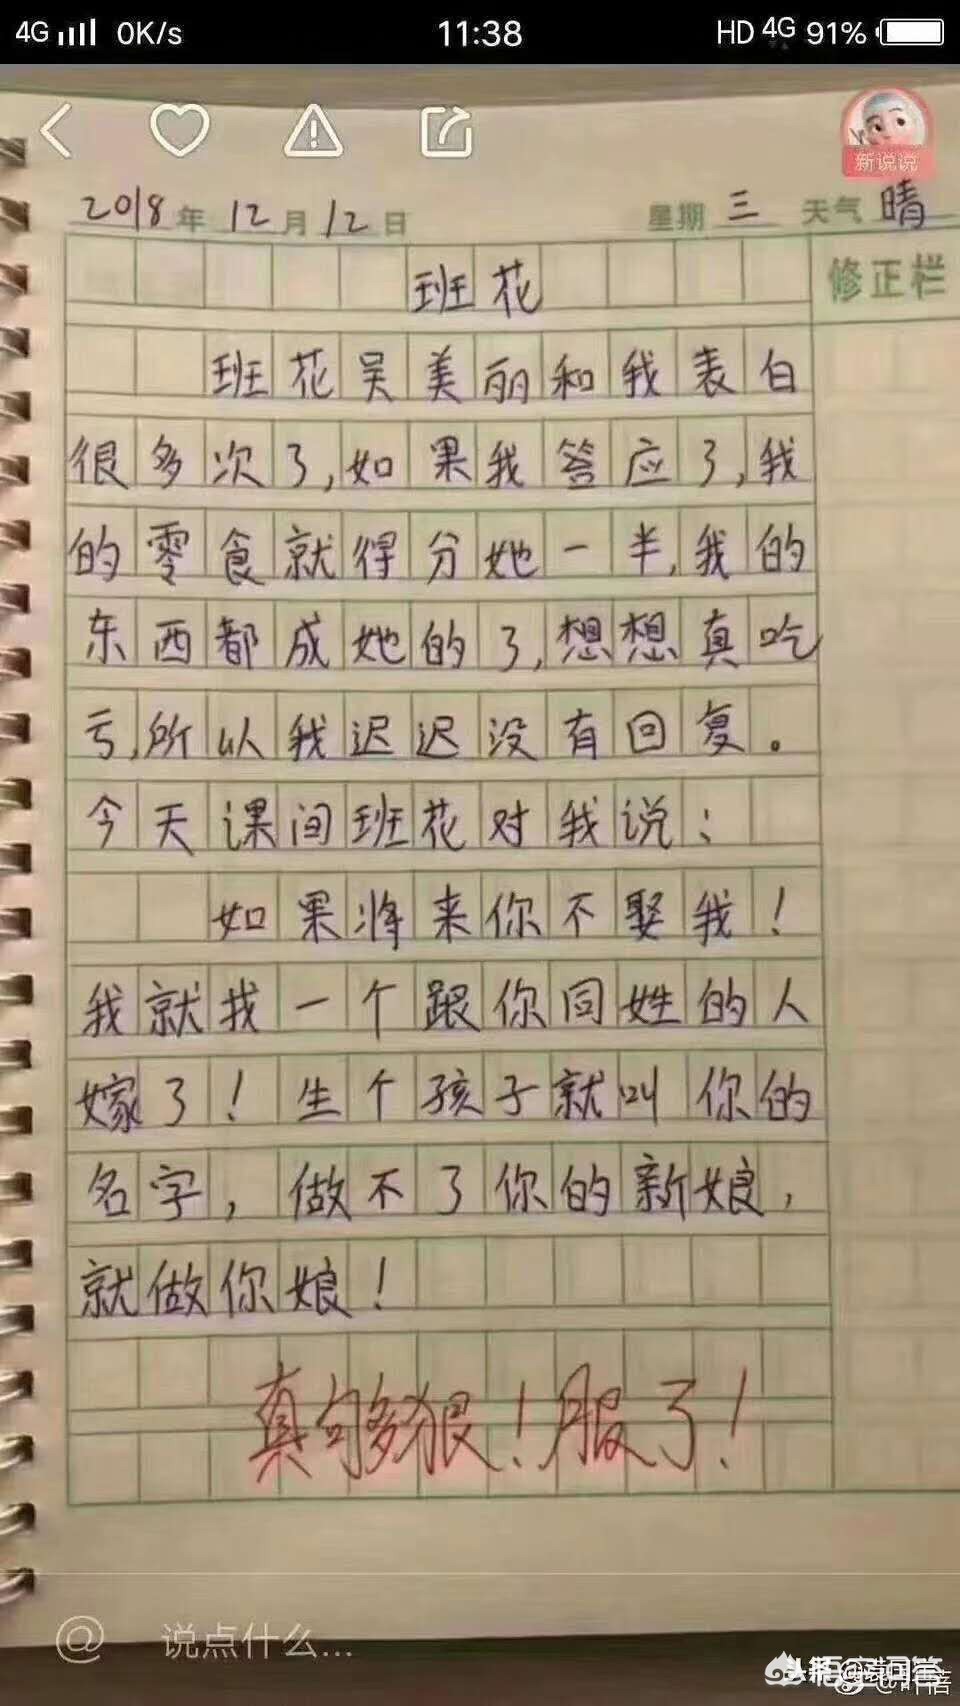 4G 0K/s 11:38 HD 4G 91%
新说说
2018年12月12日 星期三 天气晴
班花 修正栏
班花吴美丽和我表白
很多次了,如果我答应了,我
的零食就得分她一半,我的
东西都成她的了,想想真吃
亏,所以我迟迟没有回复。
今天课间班花对我说:
如果将来你不娶我!
我就找一个跟你同姓的人
嫁了!生个孩子就叫你的
名字,做不了你的新娘,
就做你娘!
真够狠!服了!
@ 说点什么...